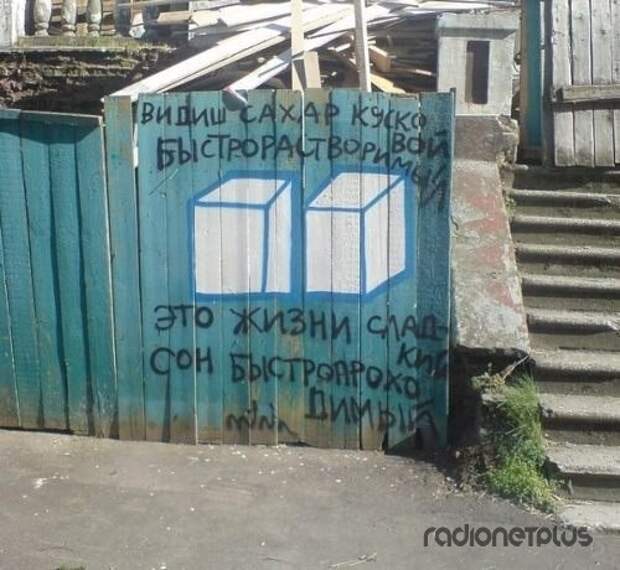 ВИДИШ САХАР КУСКО
ВОЙ
БЫСТРОРАСТВОРИМЫЙ
ЭТО ЖИЗНИ СЛАД-
КИЙ
СОН БЫСТРОПРОХО
ДИМЫЙ
radionetplus